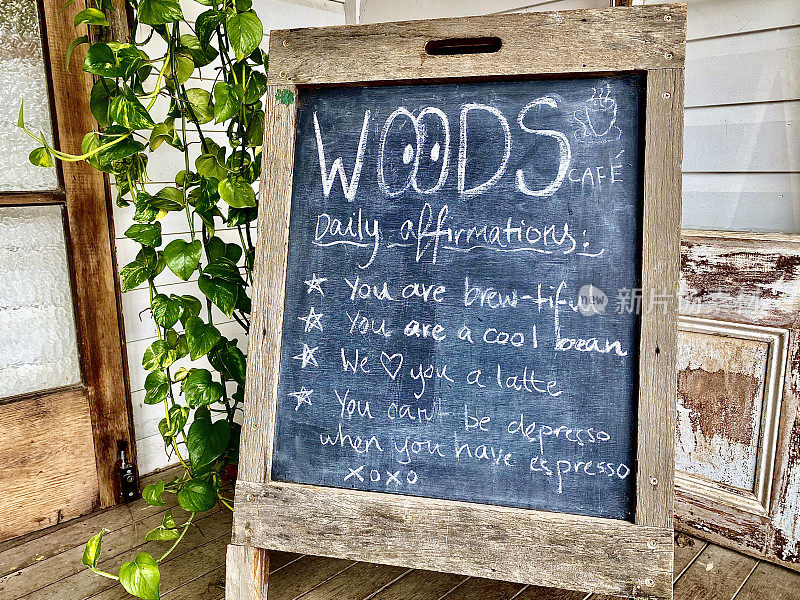 WOODS
CAFÉ
Daily affirmations:
☆ You are brew-tiful
☆ You are a cool bean
☆ We ♡ you a latte
☆ You can't be depresso
when you have espresso
xoxo
新片场